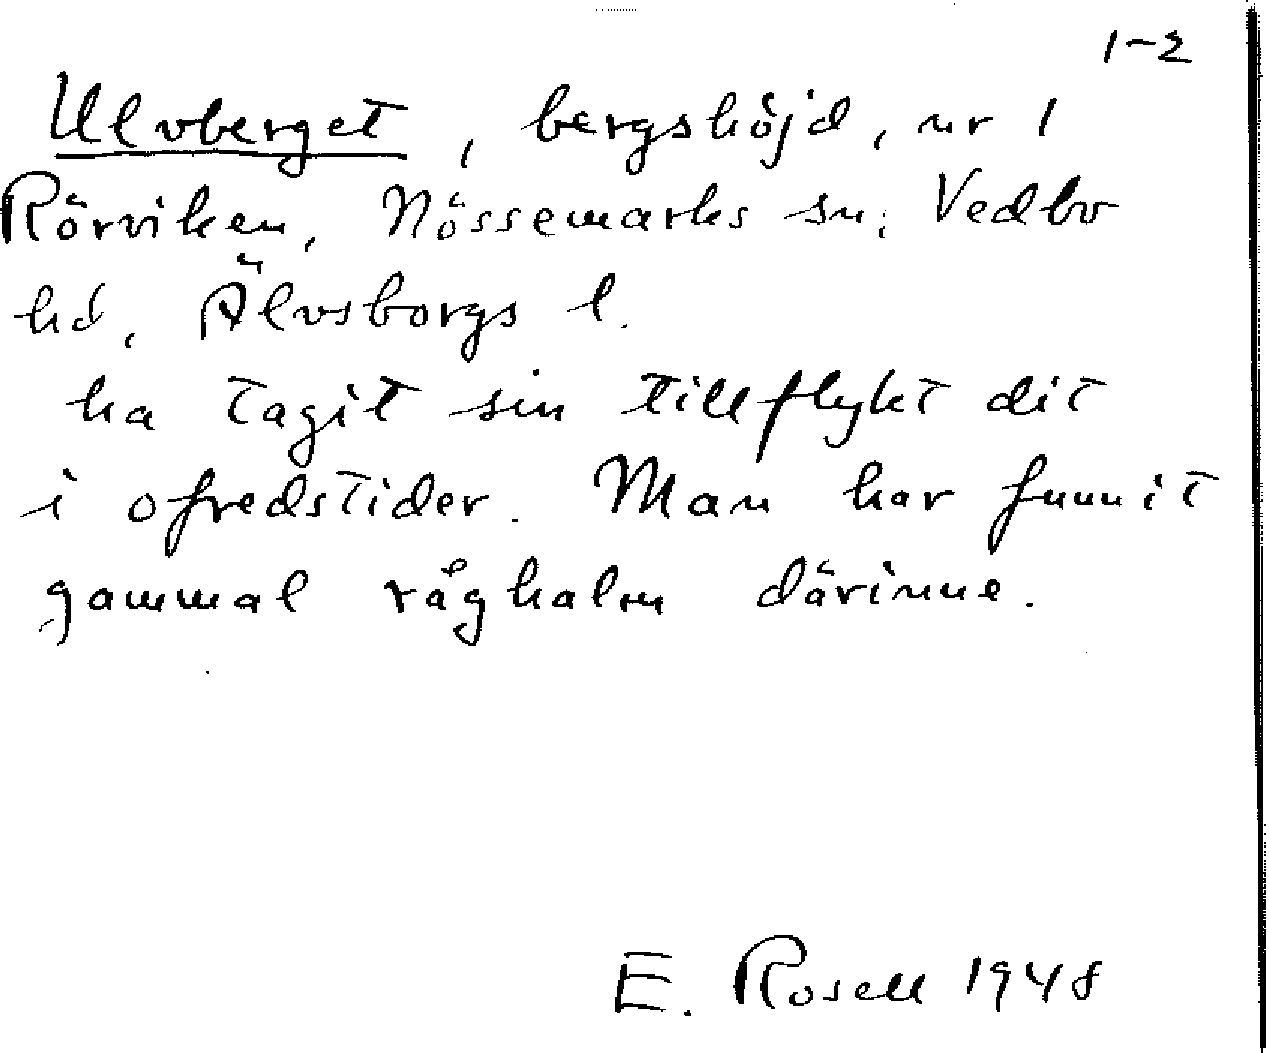 1-2
Ulvberget, bergshöjd, nr 1
Rörviken, Nössemarks sn, Vedbo
hd, Älvsborgs l.
ha tagit sin tillflykt dit
i ofredstider. Man har funnit
gammal råghalm därinne.
E. Rosell 1948